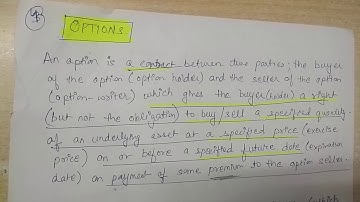 OPTIONS
An option is a contract between two parties; the buyer
of the option (option holder) and the seller of the option
(option-writer) which gives the buyer (holder) a right
(but not the obligation) to buy/sell a specified quantity
of an underlying asset at a specified price (exercise
price) on or before a specified future date (expiration
date) on payment of some premium to the option seller.
which